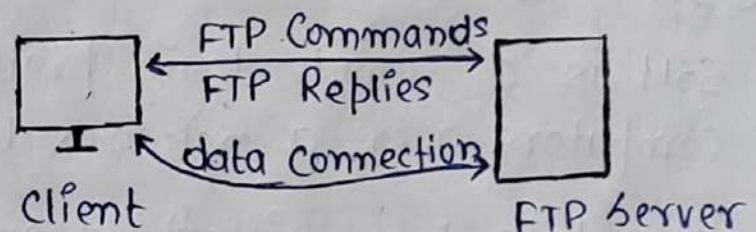 FTP Commands
FTP Replies
data connection
Client
FTP Server